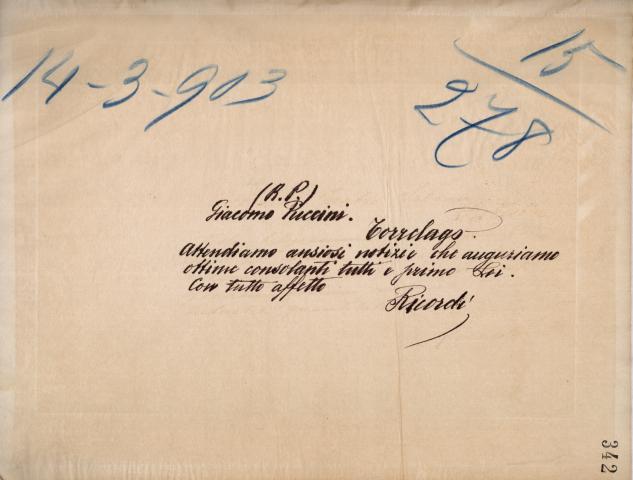 14-3-903
15
278
(R.P.)
Giacomo Puccini.
Torrelago.
Attendiamo ansiosi notizie che auguriamo
ottime consolanti tutti e primo Lei.
Con tutto affetto
Ricordi
342